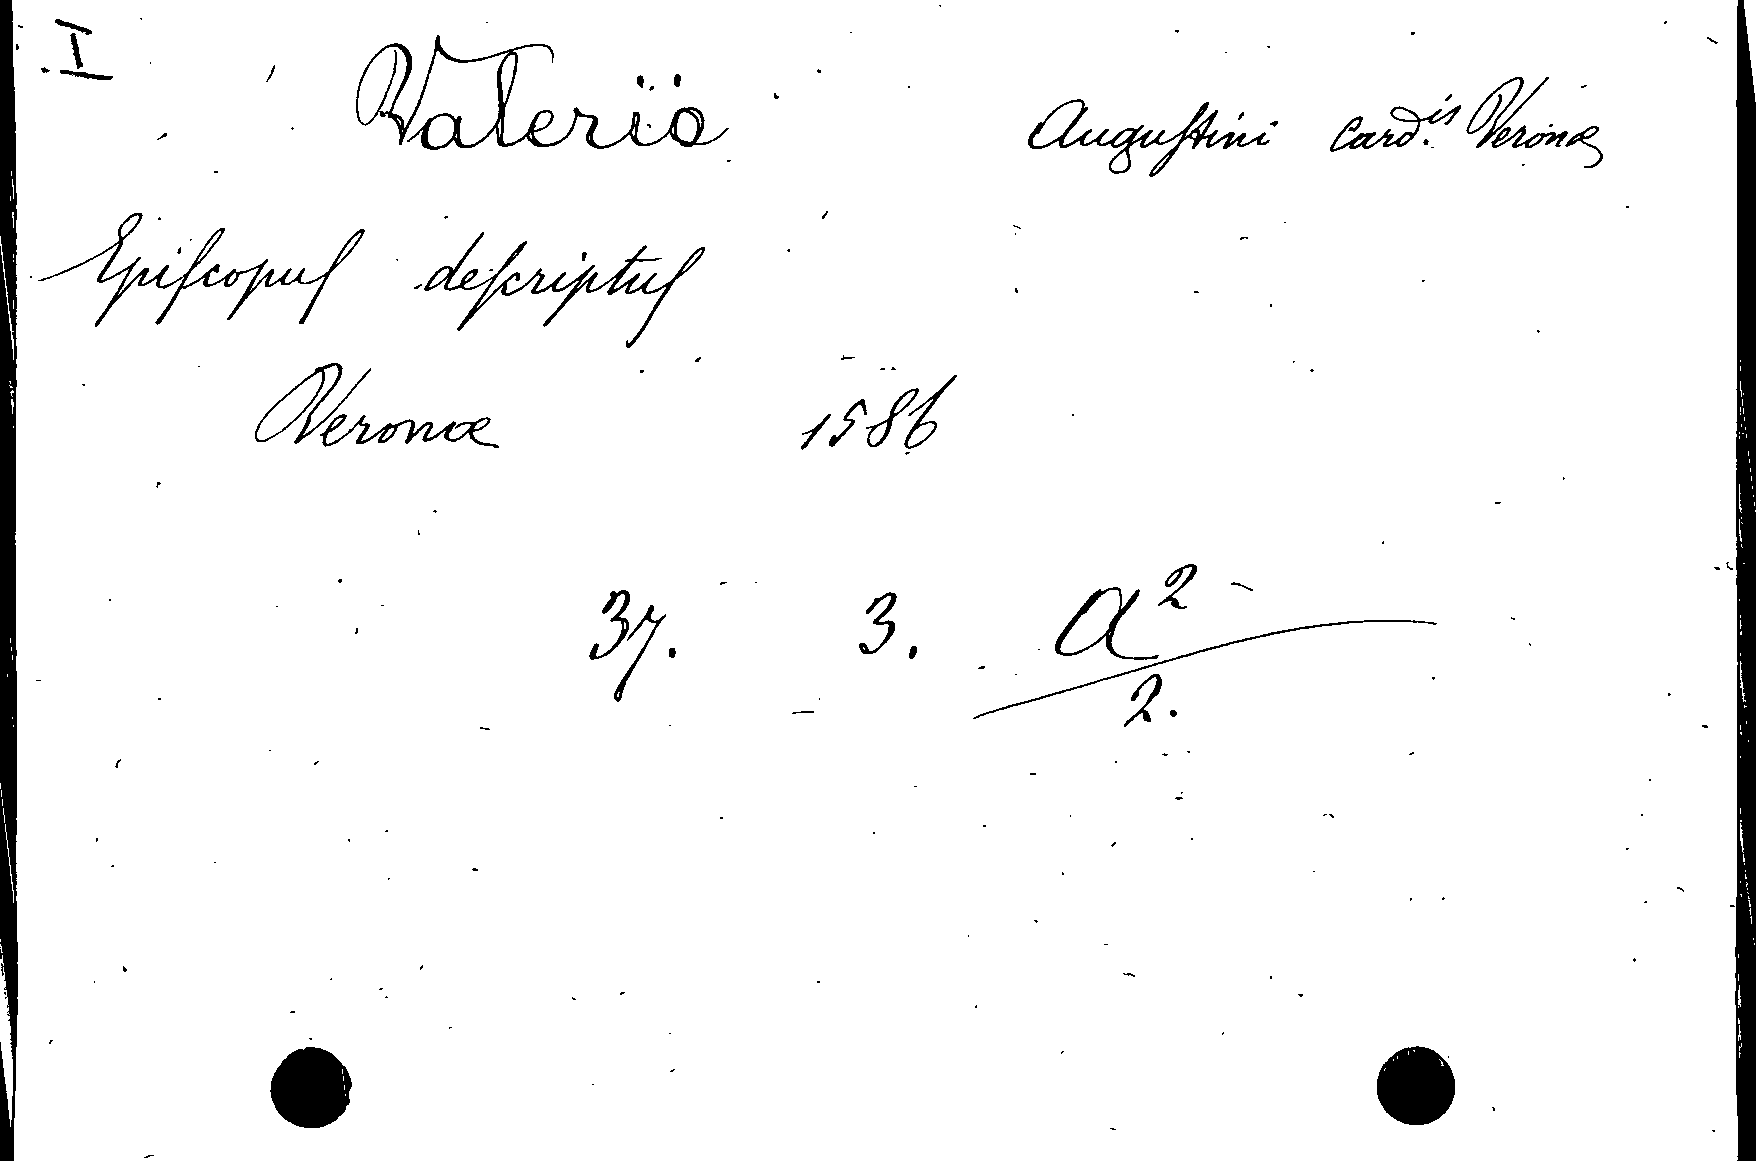 I
Valerio Augustini Card.is Veronæ
Epiſcopuſ deſcriptuſ
Veronæ 1586
37. 3. a2
2.